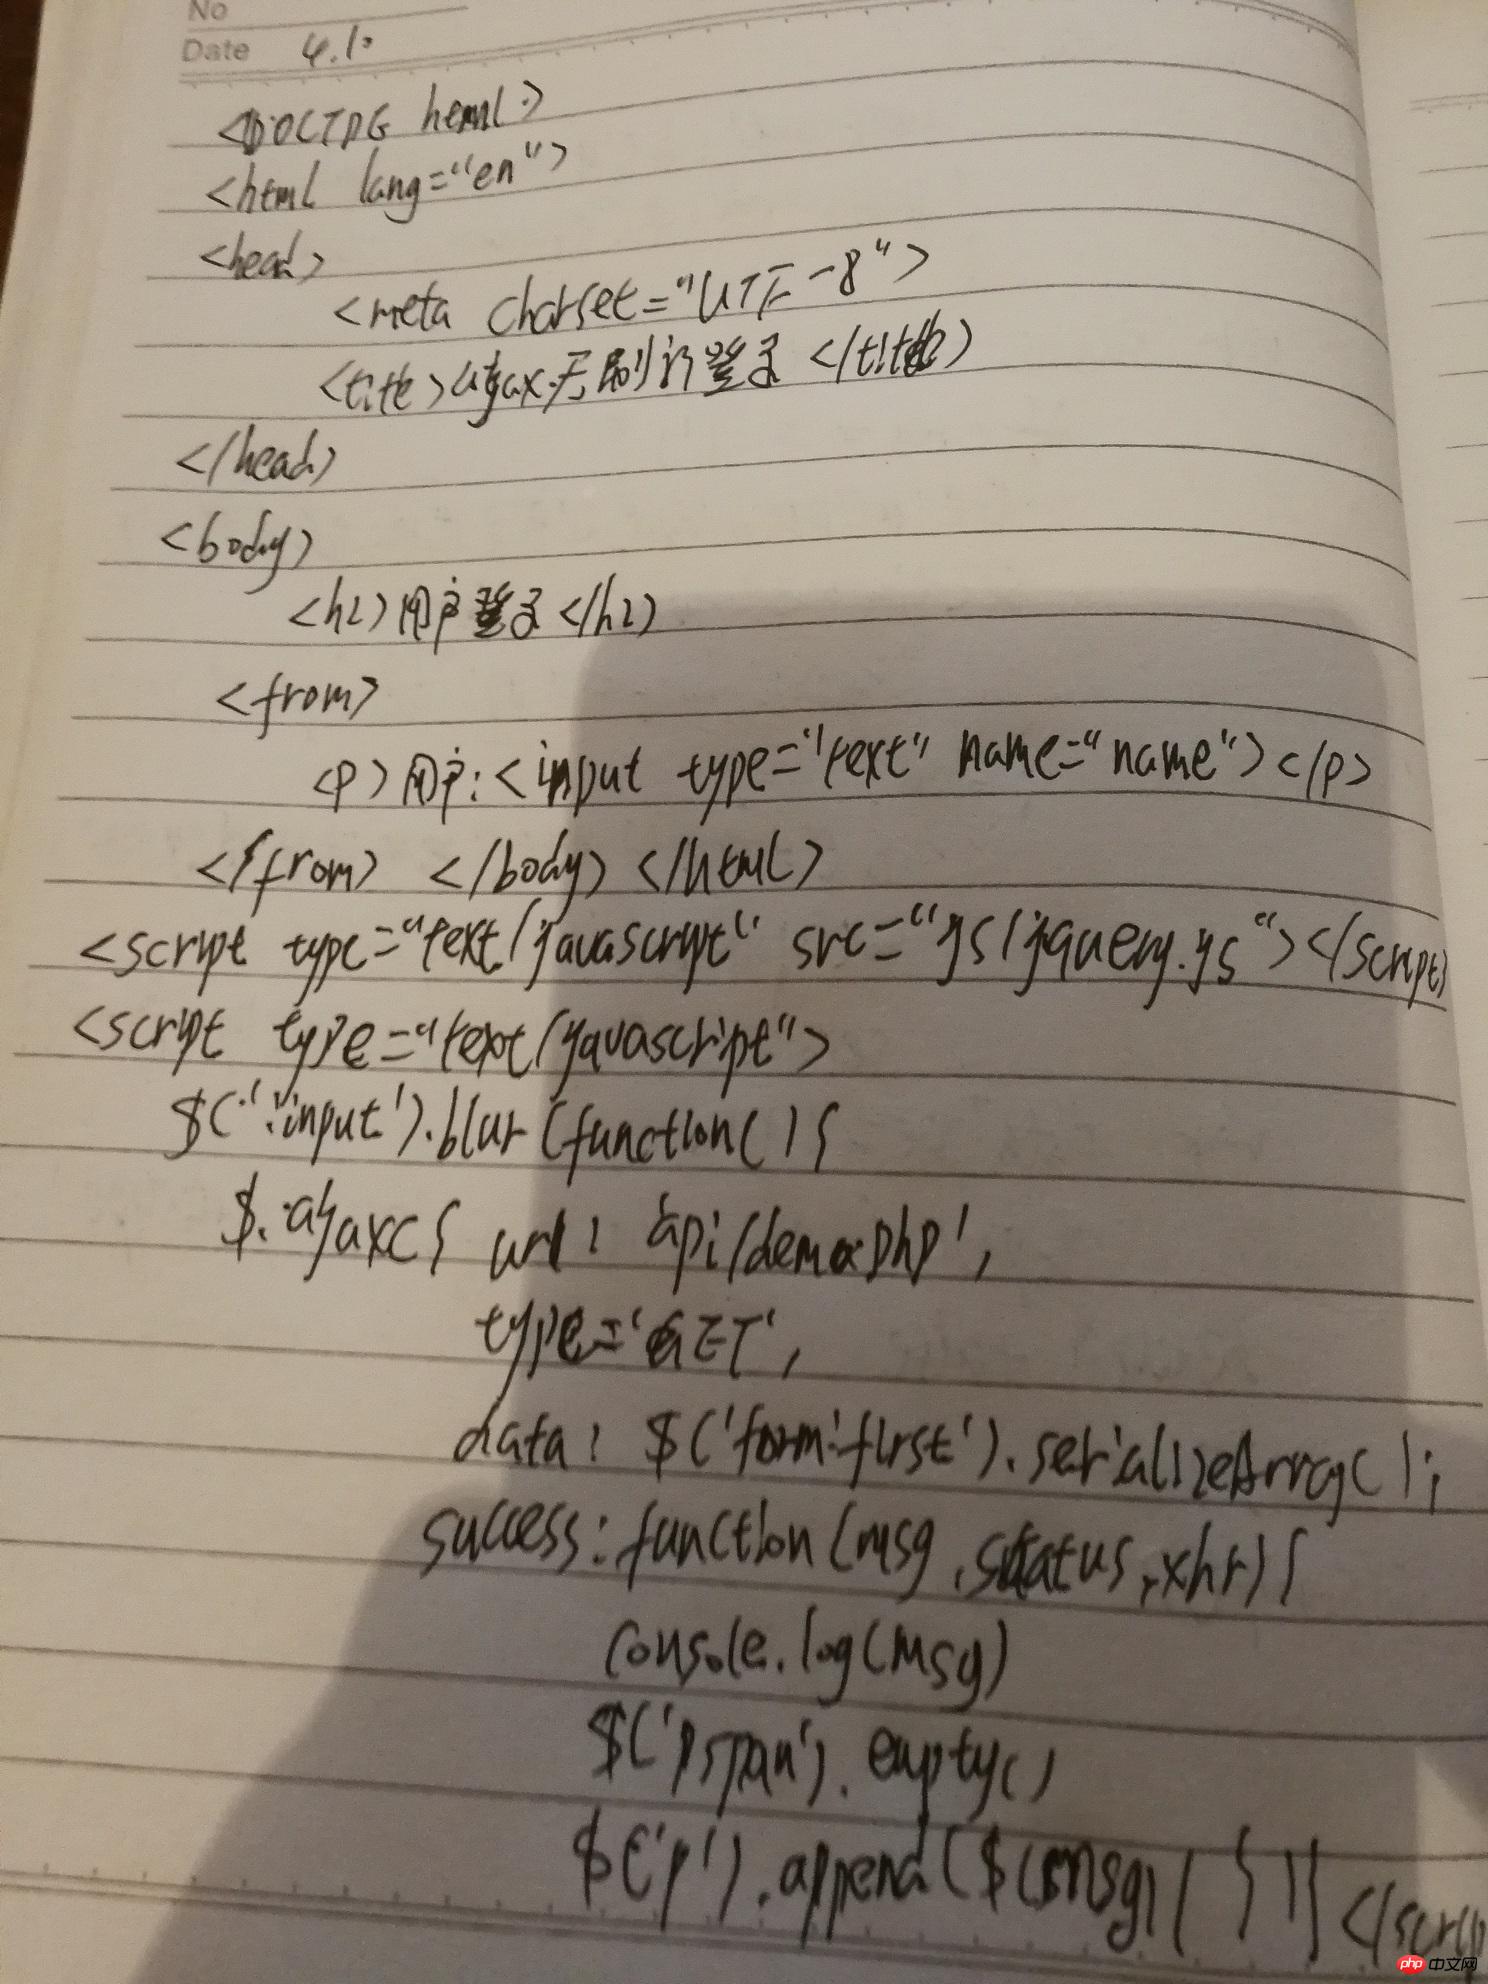 No
Date 4.10
<DOCTPG heml>
<html lang="en">
<head>
<meta charset="UTF-8">
<title>ajax无刷新登录</title>
</head>
<body>
<h2>用户登录</h2>
<from>
<p>用户:<input type="text" name="name"></p>
</from> </body> </html>
<script type="text/javascript" src="js/jquery.js"></script>
<script type="text/javascript">
$(':input').blur(function(){
$.ajax({ url: 'api/demo.php',
type='GET',
data: $('form:first').serializeArray();
success:function(msg,status,xhr){
console.log(msg)
$('p span').empty()
$('p').append($(msg)) } }) </scrip
php 中文网